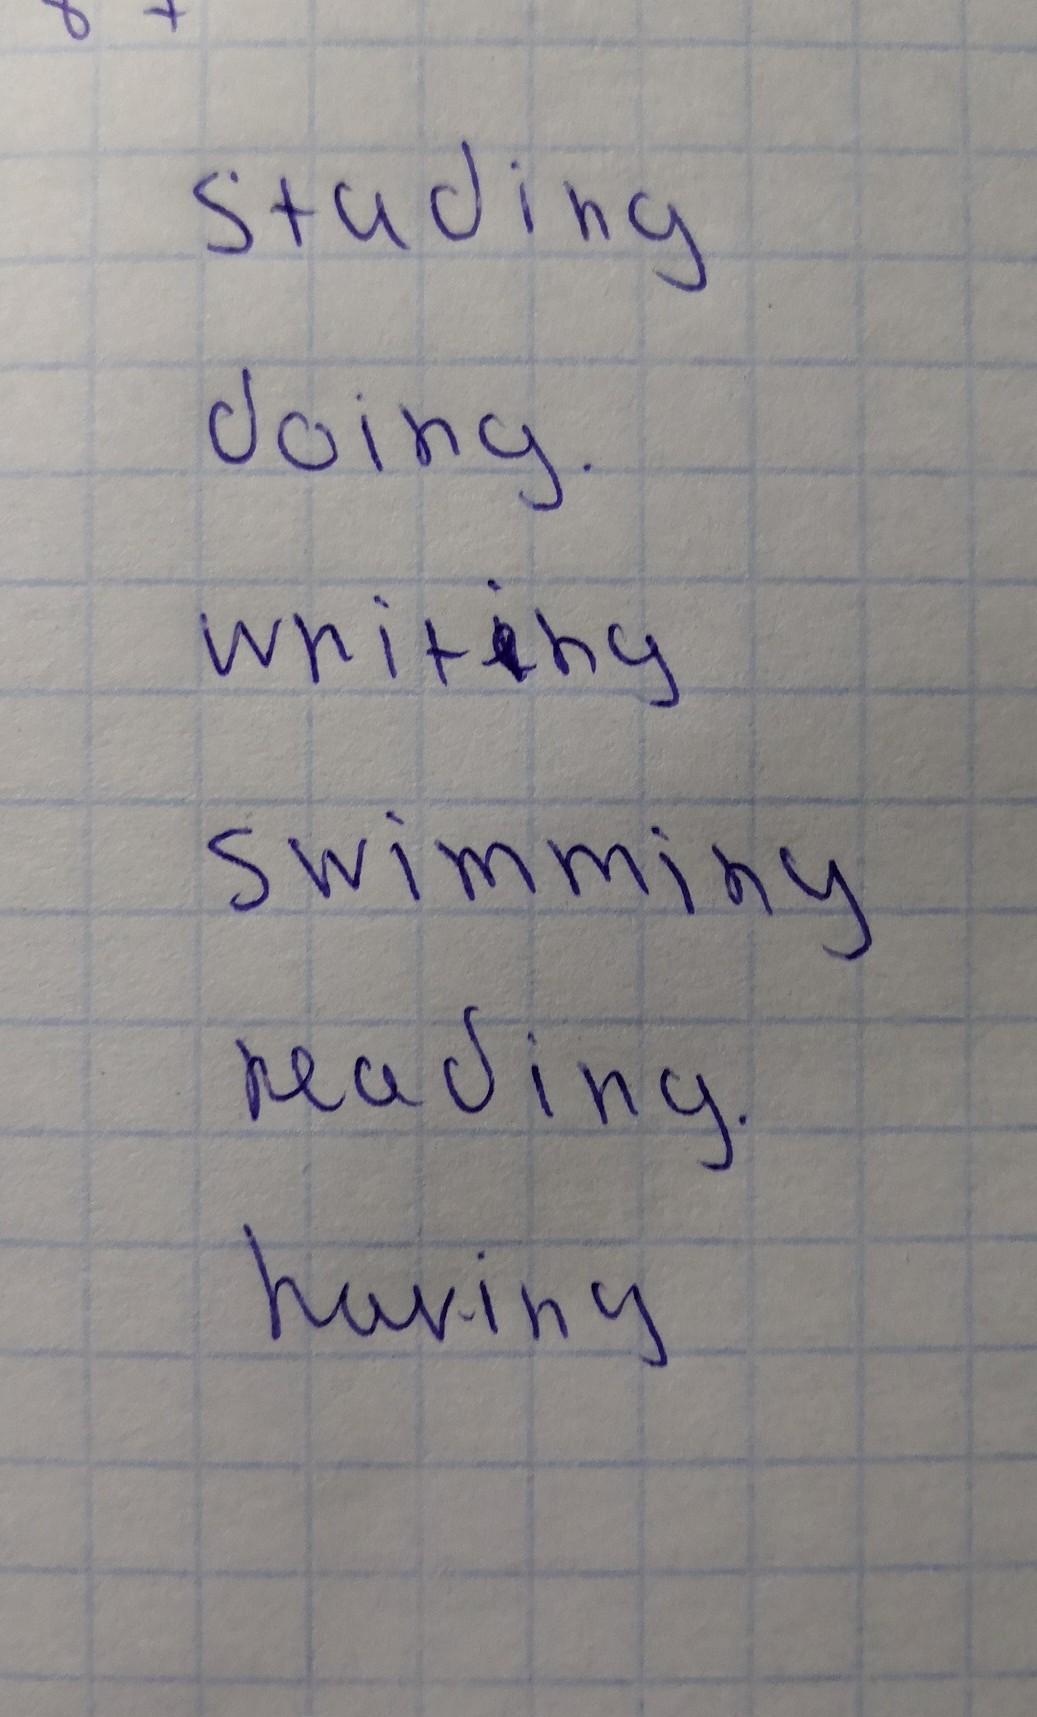 studing
doing.
writing
swimming
reading.
having